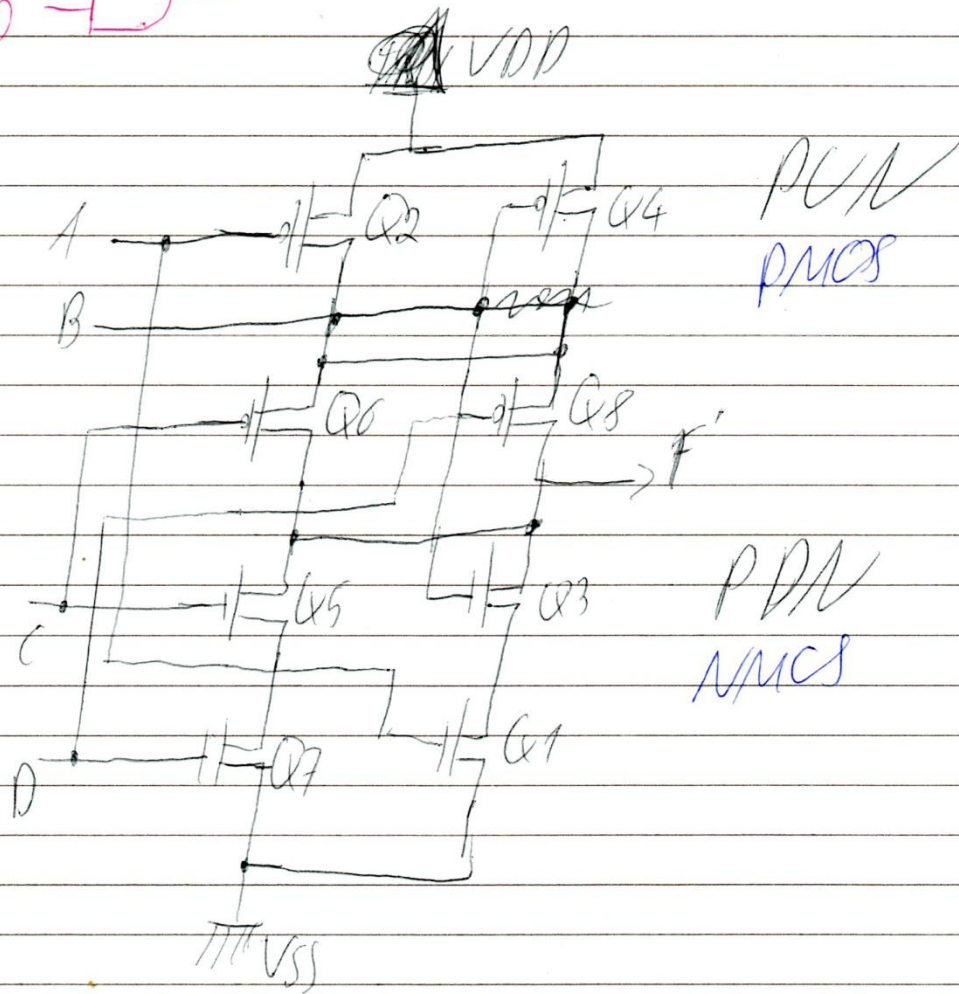 VDD
A
Q2
Q4
PUN
PMOS
B
Q6
Q8
F
C
Q5
Q3
PDN
NMOS
D
Q7
Q1
VSS